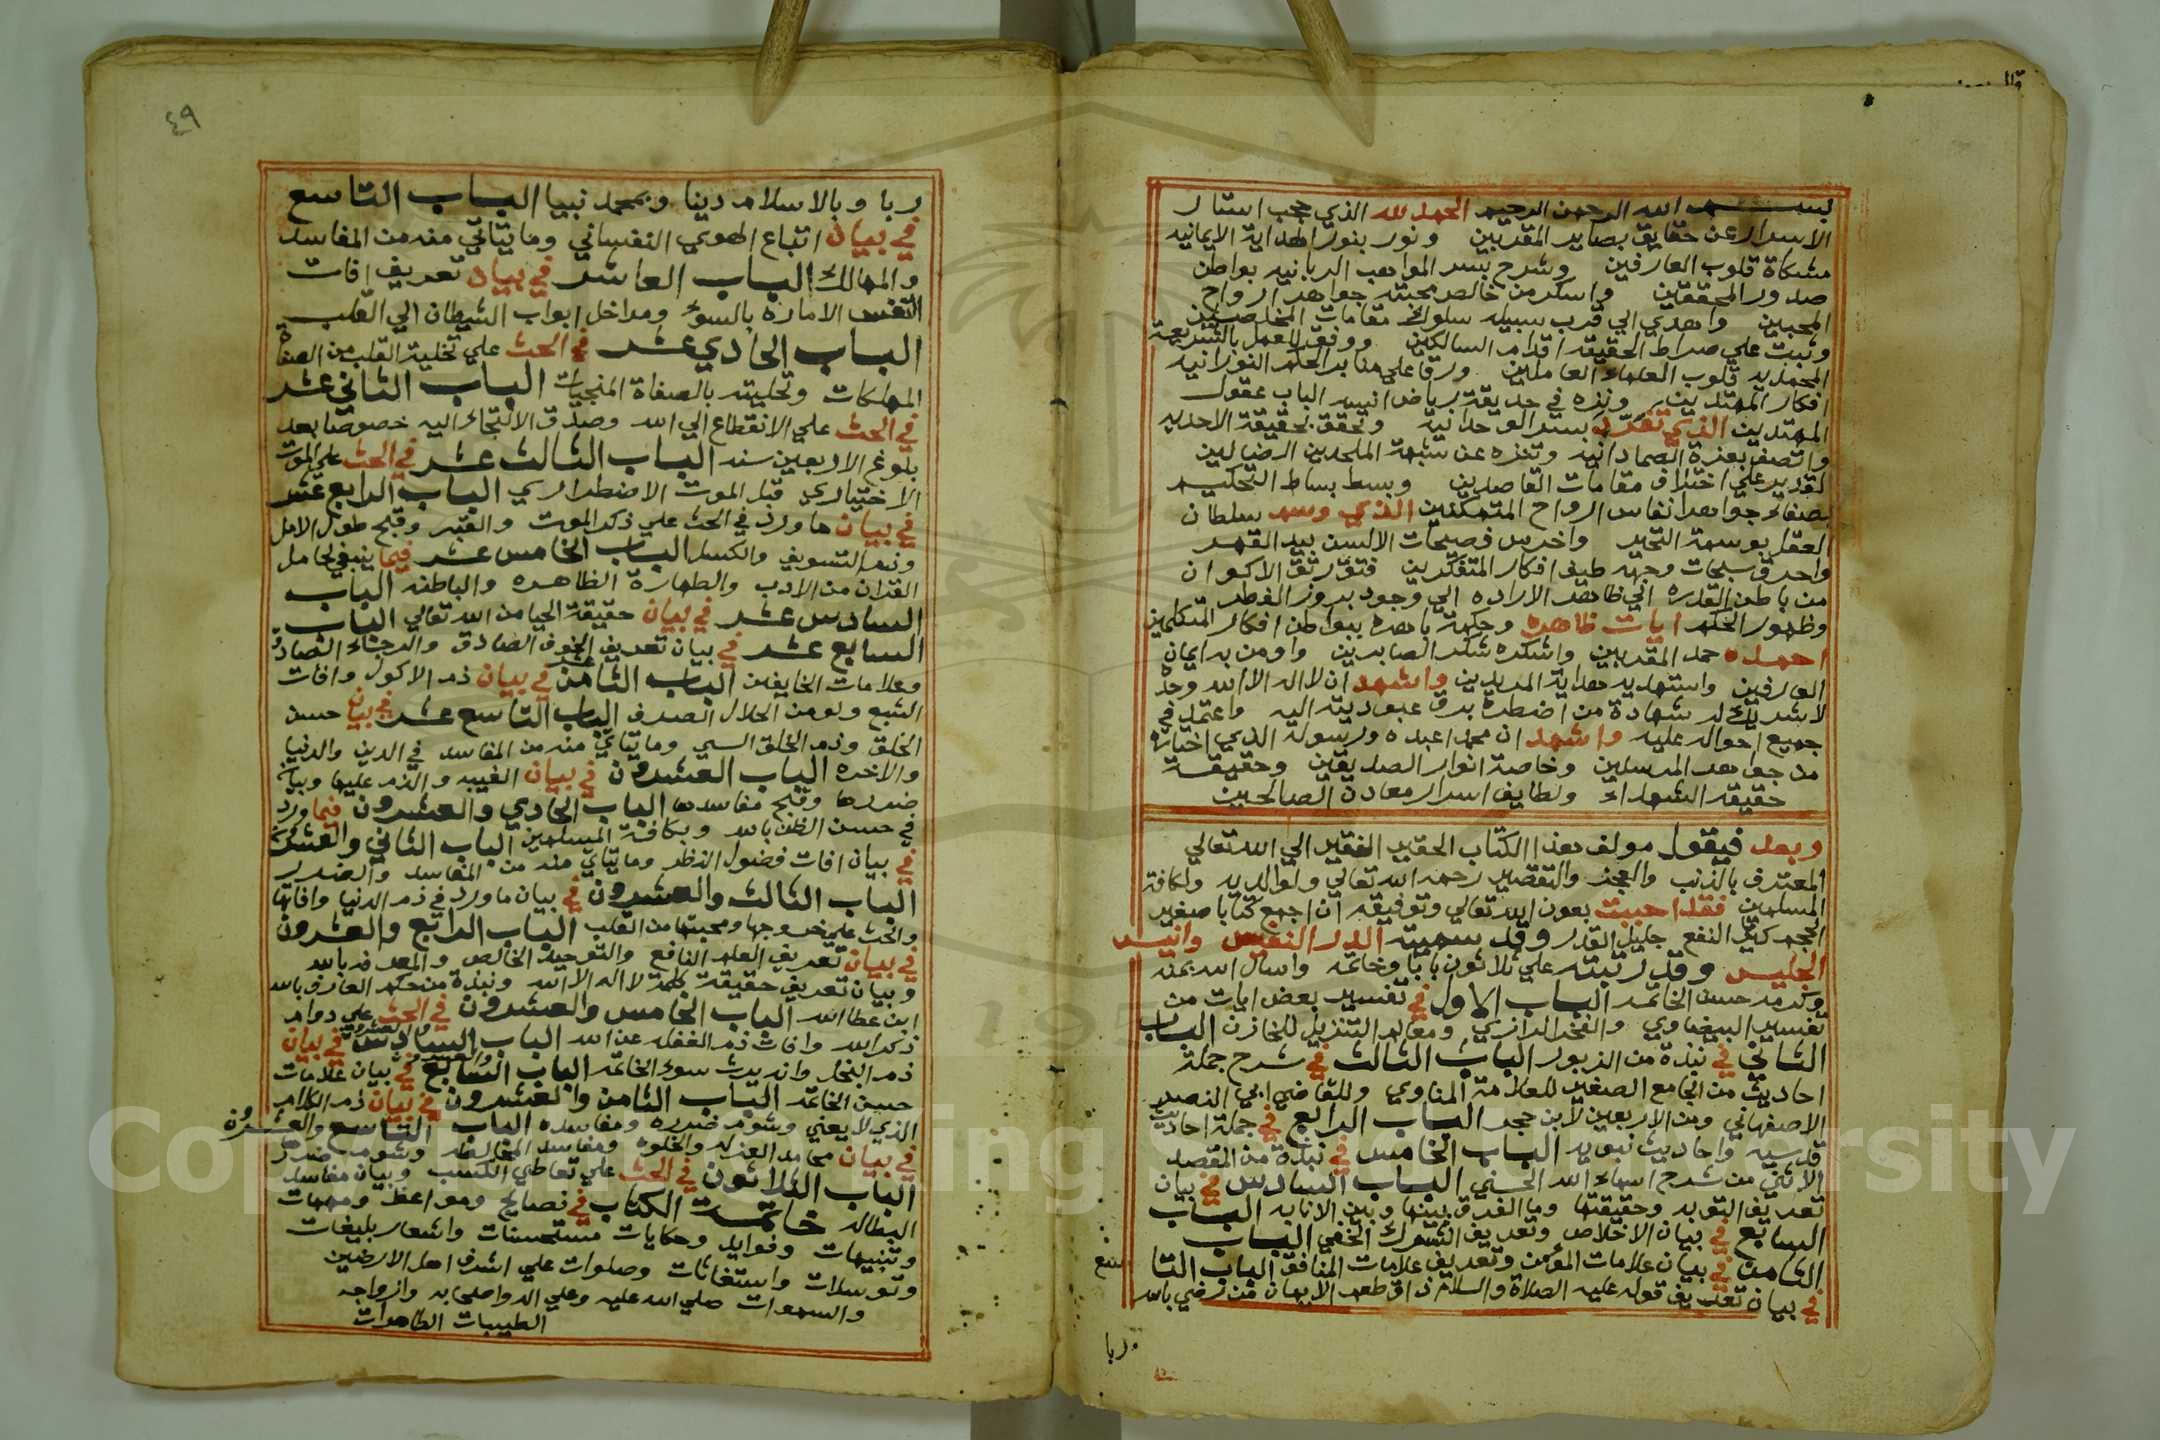 بسم الله الرحمن الرحيم الحمد لله الذي حجب استار
الاسرار عن حقايق بصاير المقربين ونور بنور الهداية الايمانيه
مشكاة قلوب العارفين وشرح بسر المواهب الربانيه بواطن
صدور المحققين واسكر من خالص محبته جواهر ارواح
المحبين واهدي الي قرب سبيله سلوك مقامات المخلصين
وثبت علي صراط الحقيقه اقدام السالكين ووفق للعمل بالشريعة
المحمديه قلوب العلماء العاملين ورقا علي منابر الحكم النورانيه
افكار المهتدين ونزه في حديقة رياض انيسه الباب عقول
المهتدين الذي تفرد بسر الوحدانية وتحقق بحقيقة الاحديه
واتصف بعزة الصمدانيه وتنزه عن شبهة الملحدين الضالين
علي اختلاف مقامات القاصدين وبسط بساط التحكيم
بصفاء جواهر انفاس ارواح المتمكنين الذي وسم سلطان
العقل بوسمة التحير واخرس فصيحات الالسن بيد القهر
واحرق سبحات وجهه طيف افكار المتفكرين فتق رتق الاكوان
من باطن القدره الي ظاهر الاراده الي وجود بروز الفطر
وظهور الحكم ايات ظاهره وحكمة باهره ببواطن افكار المتكلمين
احمده حمد المقربين واشكره شكر الصابرين واومن به ايمان
العارفين واستهديه هداية المريدين واشهد ان لا اله الا الله وحده
لا شريك له شهادة من اضطره برق عبوديته اليه واعتمد في
جميع احواله عليه واشهد ان محمدا عبده ورسوله الذي اختاره
من جواهر المرسلين وخاصة انوار الصديقين وحقيقة
حقيقه الشهداء ولطايف اسرار معادن الصالحين
وبعد فيقول مولف هذا الكتاب الحقير الفقير الي الله تعالي
المعترف بالذنب والعجز والتقصير رحمه الله تعالي ولوالديه ولكافة
المسلمين فقد احببت بعون الله تعالي وتوفيقه ان اجمع كتابا صغير
الحجم كثير النفع جليل القدر وقد سميته الدر النفيس وانيس
الجليس وقد رتبته علي ثلاثون بابا وخاتمه واسال الله بمنه
وكرمه حسن الخاتمه الباب الاول في تفسير بعض ايات من
تفسير البيضاوي والفخر الرازي ومعالم التنزيل للخازن الباب
الثاني في نبذة من الزبور الباب الثالث في شرح جملة
احاديث من الجامع الصغير للعلامة المناوي وللقاضي ابي النصر
الاصفهاني ومن الاربعين لابن حجر الباب الرابع في جملة احاديث
قدسيه واحاديث نبويه الباب الخامس في نبذة من المقصد
الاثني من شرح اسماء الله الحسني الباب السادس في بيان
تعريف التوبه وحقيقتها وما الفرق بينها وبين الانابه الباب
السابع في بيان الاخلاص وتعريف الشرك الخفي الباب
الثامن في بيان علامات المؤمن وتعريف علامات المنافق الباب التا
سع
في بيان تعريف قوله عليه الصلاة والسلام ذاق طعم الايمان من رضي بالله
ربا
٤٩
ربا وبالاسلام دينا وبمحمد نبيا الباب التاسع
في بيان اتباع الهوي النفساني وما يتاتي منه من المفاسد
والمهالك الباب العاشر في بيان تعريف افات
النفس الاماره بالسوء ومداخل ابواب الشيطان الي القلب
الباب الحادي عشر في الحث علي تخلية القلب من الصفاة
المهلكات وتحليته بالصفاة المنجيات الباب الثاني عشر
في الحث علي الانقطاع الي الله وصدق الالتجاء اليه خصوصا بعد
بلوغ الاربعين سنه الباب الثالث عشر في الحث علي الموت
الاختياري قبل الموت الاضطراري الباب الرابع عشر
في بيان ما ورد في الحث علي ذكر الموت والقبر وقبح طول الامل
وذم التسويف والكسل الباب الخامس عشر فيما ينبغي لحامل
القران من الادب والطهارة الظاهره والباطنه الباب
السادس عشر في بيان حقيقة الحيا من الله تعالي الباب
السابع عشر في بيان تعريف الخوف الصادق والرجاء الصادق
وعلامات الخايفين الباب الثامن عشر في بيان ذم الاكول وافات
الشبع ولو من الحلال الصرف الباب التاسع عشر في بيان حسن
الخلق وذم الخلق السي وما يتاتي منه من المفاسد في الدين والدنيا
والاخره الباب العشرون في بيان الغيبه والذم عليها وبيان
ضررها وقبح مفاسدها الباب الحادي والعشرون فيما ورد
في حسن الظن بالله وبكافة المسلمين الباب الثاني والعشرون
في بيان افات فضول النظر وما يتاتي منه من المفاسد والضرر
الباب الثالث والعشرون في بيان ما ورد في ذم الدنيا وافاتها
والحث علي خروجها ومحبتها من القلب الباب الرابع والعشرون
في بيان تعريف العلم النافع والتوحيد الخالص والمعرفه بالله
وبيان تعريف حقيقة كلمة لا اله الا الله ونبذة من حكم العارف بالله
ابن عطا الله الباب الخامس والعشرون في الحث علي دوام
ذكر الله وافات ذم الغفله عن الله الباب السادس والعشرون في بيان
ذم البخل وانه يورث سوء الخاتمه الباب السابع والعشرون في بيان علامات
حسن الخاتمه الباب الثامن والعشرون في بيان ذم الكلام
الذي لا يعني وشوم ضرره ومفاسده الباب التاسع والعشرون
في بيان محامد العزله والخلوه ومفاسد المخالطه وشوم ضرر
الباب الثلاثون في الحث علي تعاطي الكسب وبيان مفاسد
البطاله خاتمة الكتاب في نصايح ومواعظ ومهمات
وتنبيهات وفوايد وحكايات مستحسنات واشعار بليغات
وتوسلات واستغاثات وصلوات علي اشرف اهل الارضين
والسموات صلي الله عليه وعلي اله واصحابه وازواجه
الطيبات الطاهرات